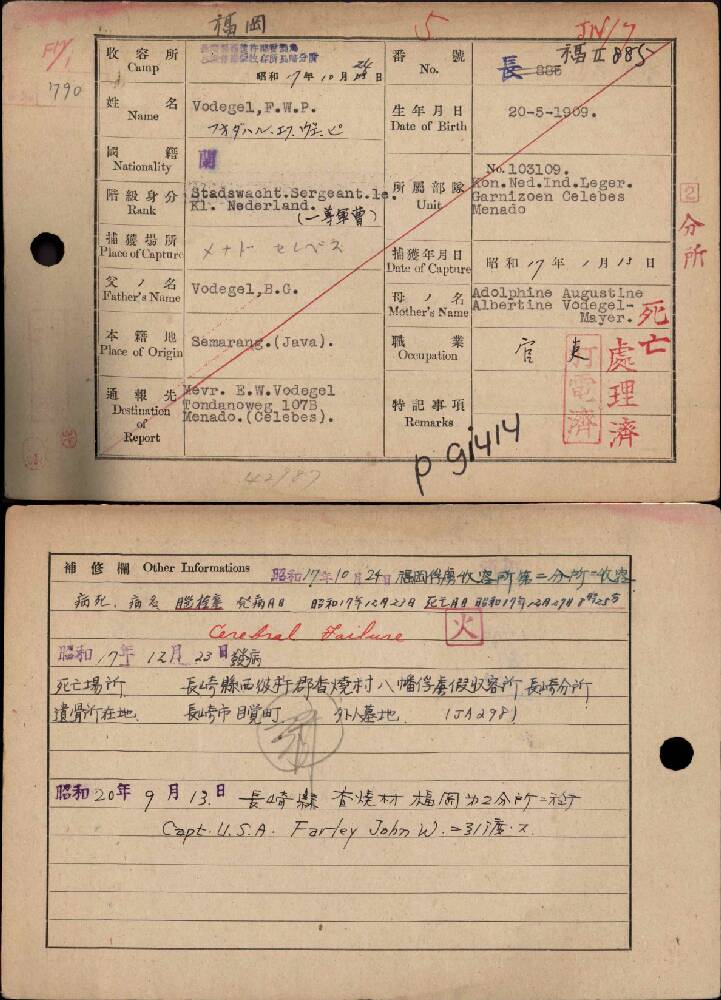 福岡
5
790
收容所
Camp
昭和17年10月24日
番號
No.
長 886
福II 885
姓名
Name
Vodegel,F.W.P.
フオダハル.エフ.ヴエ.ピ
生年月日
Date of Birth
20-5-1909.
國籍
Nationality
蘭
階級身分
Rank
Stadswacht.Sergeant.1e.
Kl. Nederland.
(一等軍曹)
所屬部隊
Unit
No.103109.
Kon.Ned.Ind.Leger.
Garnizoen Celebes
Menado
2
分所
捕獲場所
Place of Capture
メナド セレベス
捕獲年月日
Date of Capture
昭和17年1月13日
父ノ名
Father's Name
Vodegel,B.G.
母ノ名
Mother's Name
Adolphine Augustine
Albertine Vodegel-
Mayer.
死亡
本籍地
Place of Origin
Semarang.(Java).
職業
Occupation
官吏
處理濟
電濟
通報先
Destination
of
Report
Mevr. E.W.Vodegel
Tondanoweg 107B
Menado.(Celebes).
特記事項
Remarks
P 91414
42987
補修欄 Other Informations
昭和17年10月24日 福岡俘虜收容所第二分所ニ收容
病死. 病名 腦栓塞 発病月日 昭和17年12月23日 死亡月日 昭和17年12月29日
Cerebral Failure
火
昭和17年12月23日發病
死亡場所. 長崎縣西彼杵郡香燒村八幡俘虜假収容所長崎分所
遺骨所在地. 長崎市目覚町 外人墓地. (JA298)
昭和20年9月13.日 長崎縣香焼村福岡第2分所ニ於テ
Capt. U.S.A. Farley John W. ニ引渡ス